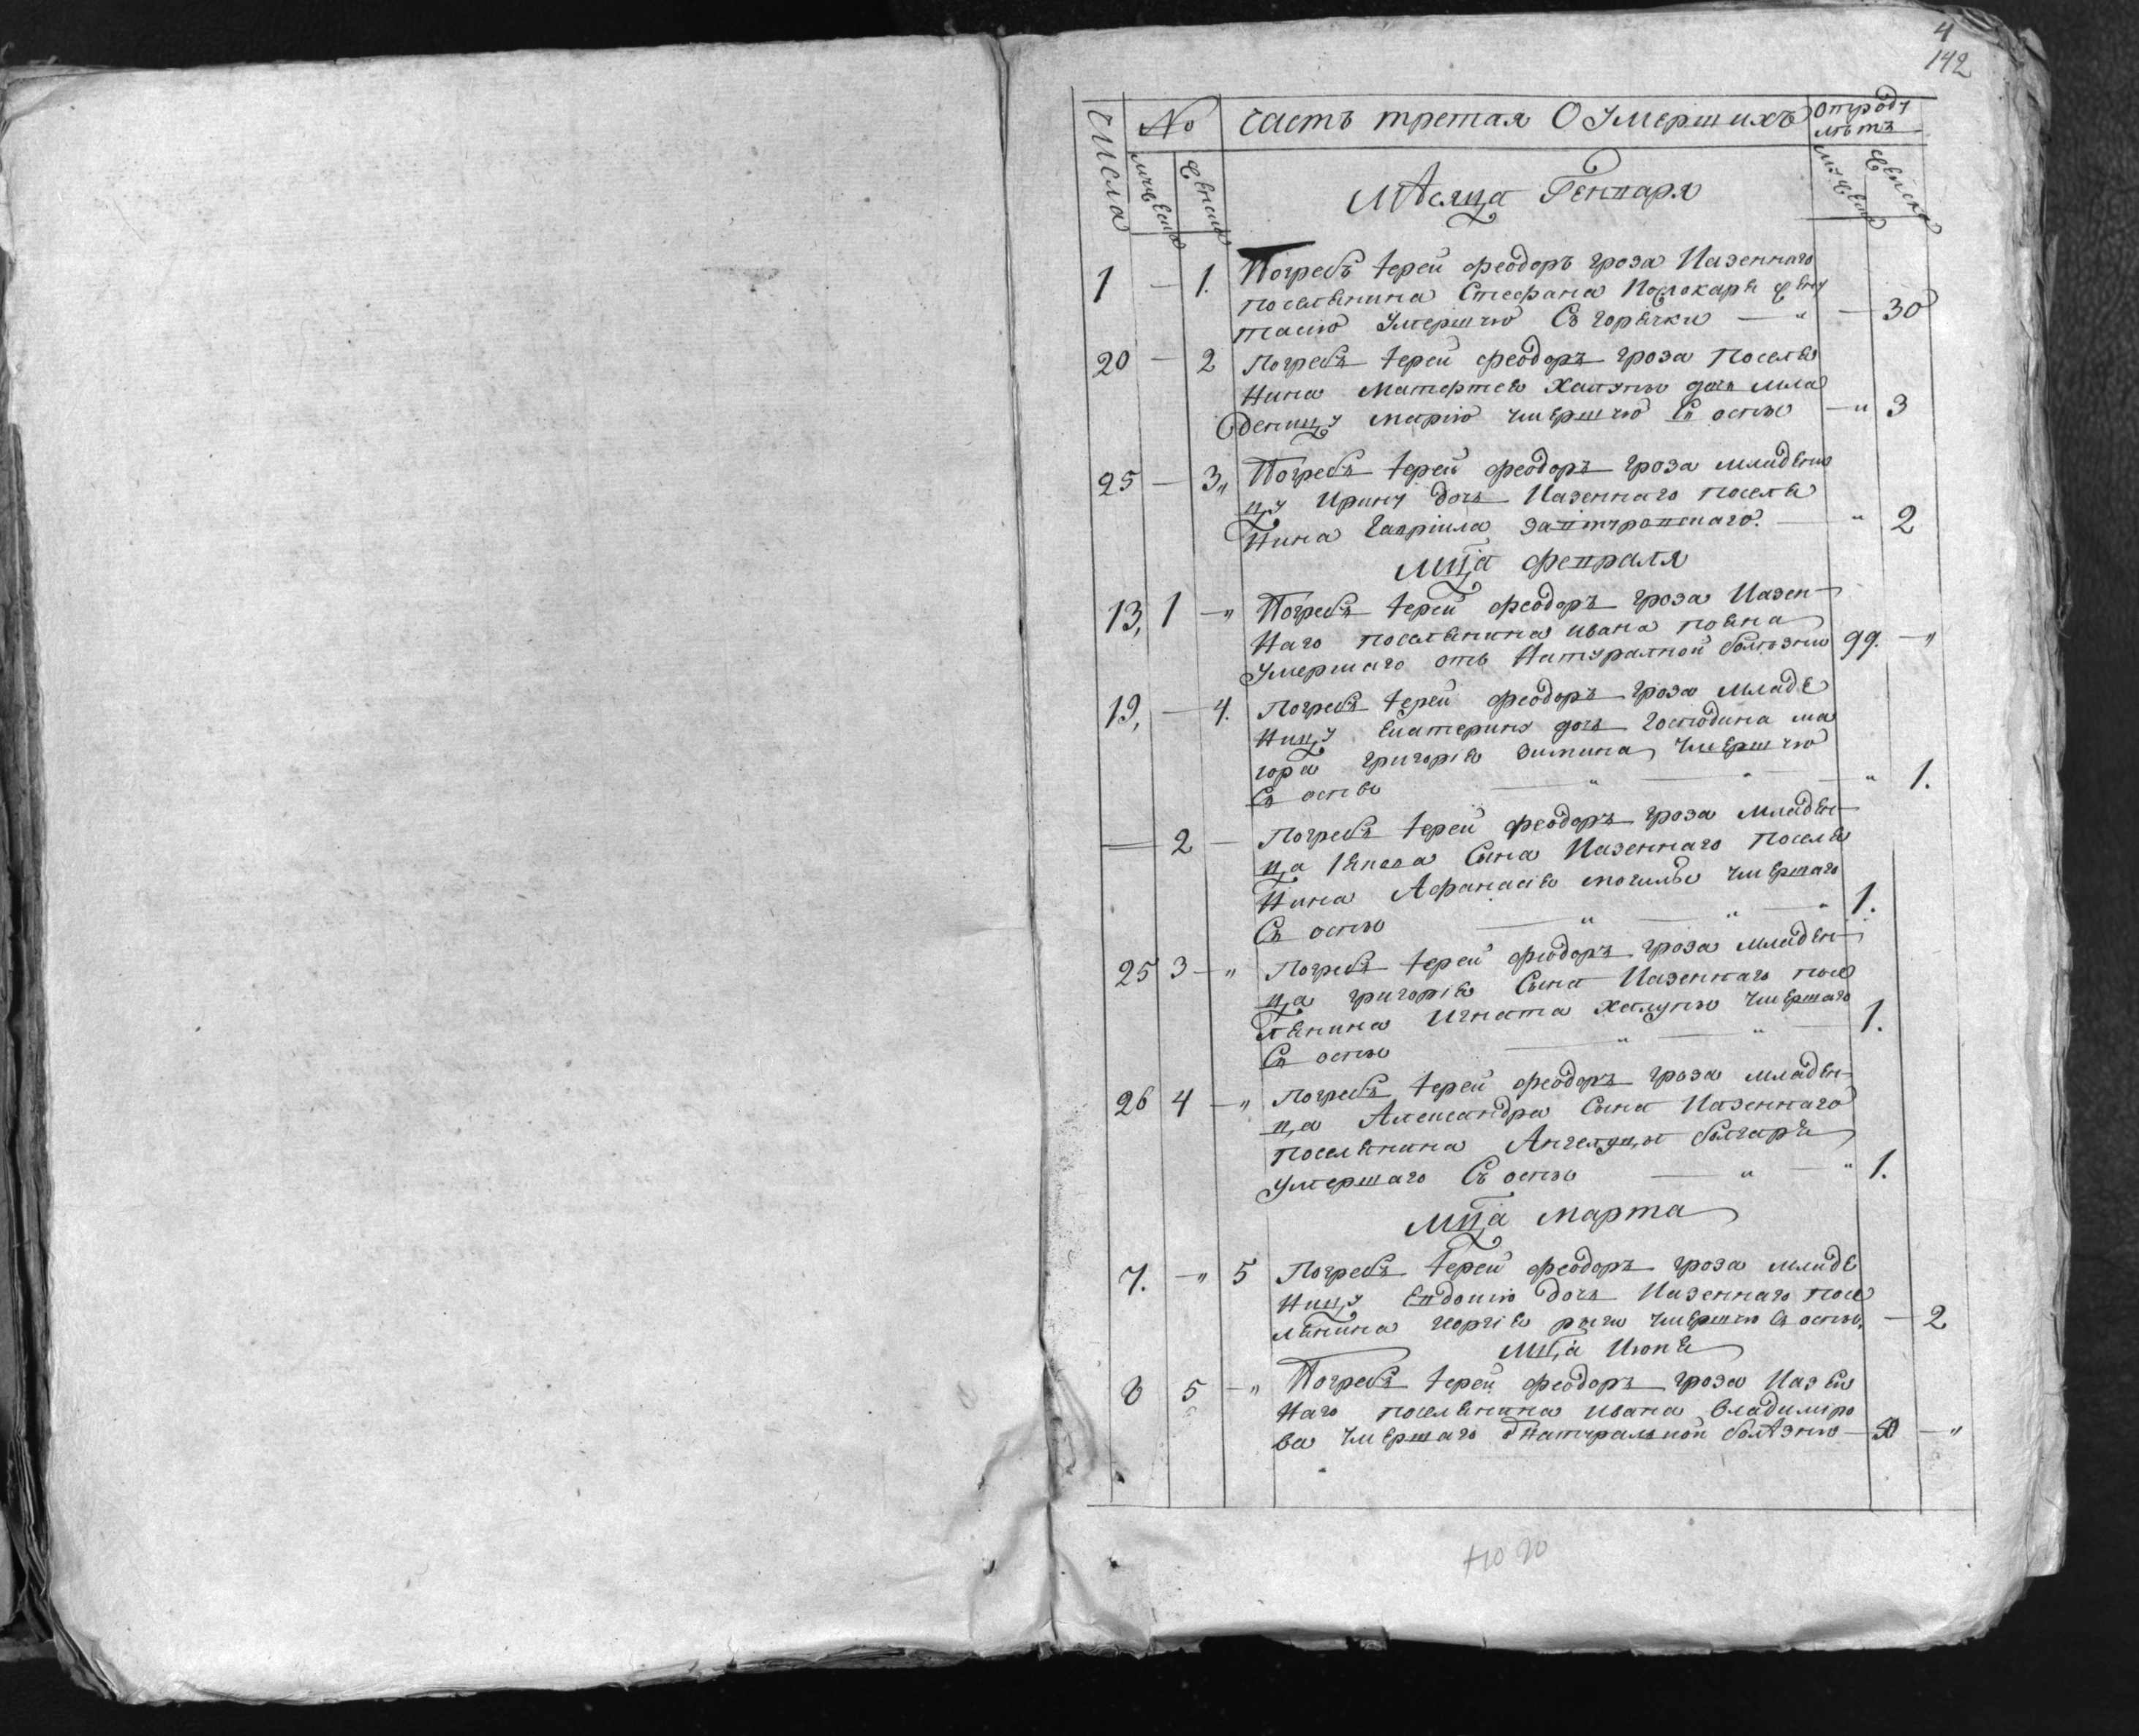 4
142
Числа № Часть третая О Умершихъ Отроду летъ
Мужеска Женска Мужеска Женска
Месяца Генпаря
1 — 1. Погребъ Іерей Феодоръ Гроза Казеннаго
поселянина Стефана жену
тасию Умершую Съ горячки — „ — 30
20 — 2 Погребъ Іерей Феодоръ Гроза Поселя
нина дочь мла
деницу Марию умершую Съ оспы — „ 3
25 — 3„ Погребъ Іерей Феодоръ Гроза младени
цу Ирину дочь Казеннаго поселя
нина Гавріила — „ 2
Мца Февраля
13, 1 — „ Погребъ Іерей Феодоръ Гроза Казен-
наго поселянина Ивана
Умершаго отъ Натуралной болѣзни 99. — „
19, — 4. Погребъ Іерей Феодоръ Гроза Младе
ницу Екатерину дочь Господина ма
іора Григорія Зимина умершую
Съ оспы „ — „ — „ 1.
— 2 — Погребъ Іерей Феодоръ Гроза младен-
ца Сына Казеннаго поселя
нина Афанасія Могилы умершаго
Съ оспы — „ — „ — „ 1.
25 3 — „ Погребъ Іерей Феодоръ Гроза младен-
ца Григорія Сына Казеннаго посе
лянина Игната Халупы умершаго
Съ оспы — „ — „ — 1.
26 4 — „ Погребъ Іерей Феодоръ Гроза младен-
ца Александра Сына Казеннаго
поселянина болгаря
Умершаго Съ оспы — „ — „ 1.
Мца Марта
7. — „ 5 Погребъ Іерей Феодоръ Гроза младе
ницу Евдокию дочь Казеннаго посе
лянина Георгія умершую Съ оспы. — 2
Мца Июня
8 5 — „ Погребъ Іерей Феодоръ Гроза Казен
наго поселянина Ивана Владиміро
ва умершаго натуральной болѣзнию — 50 — „